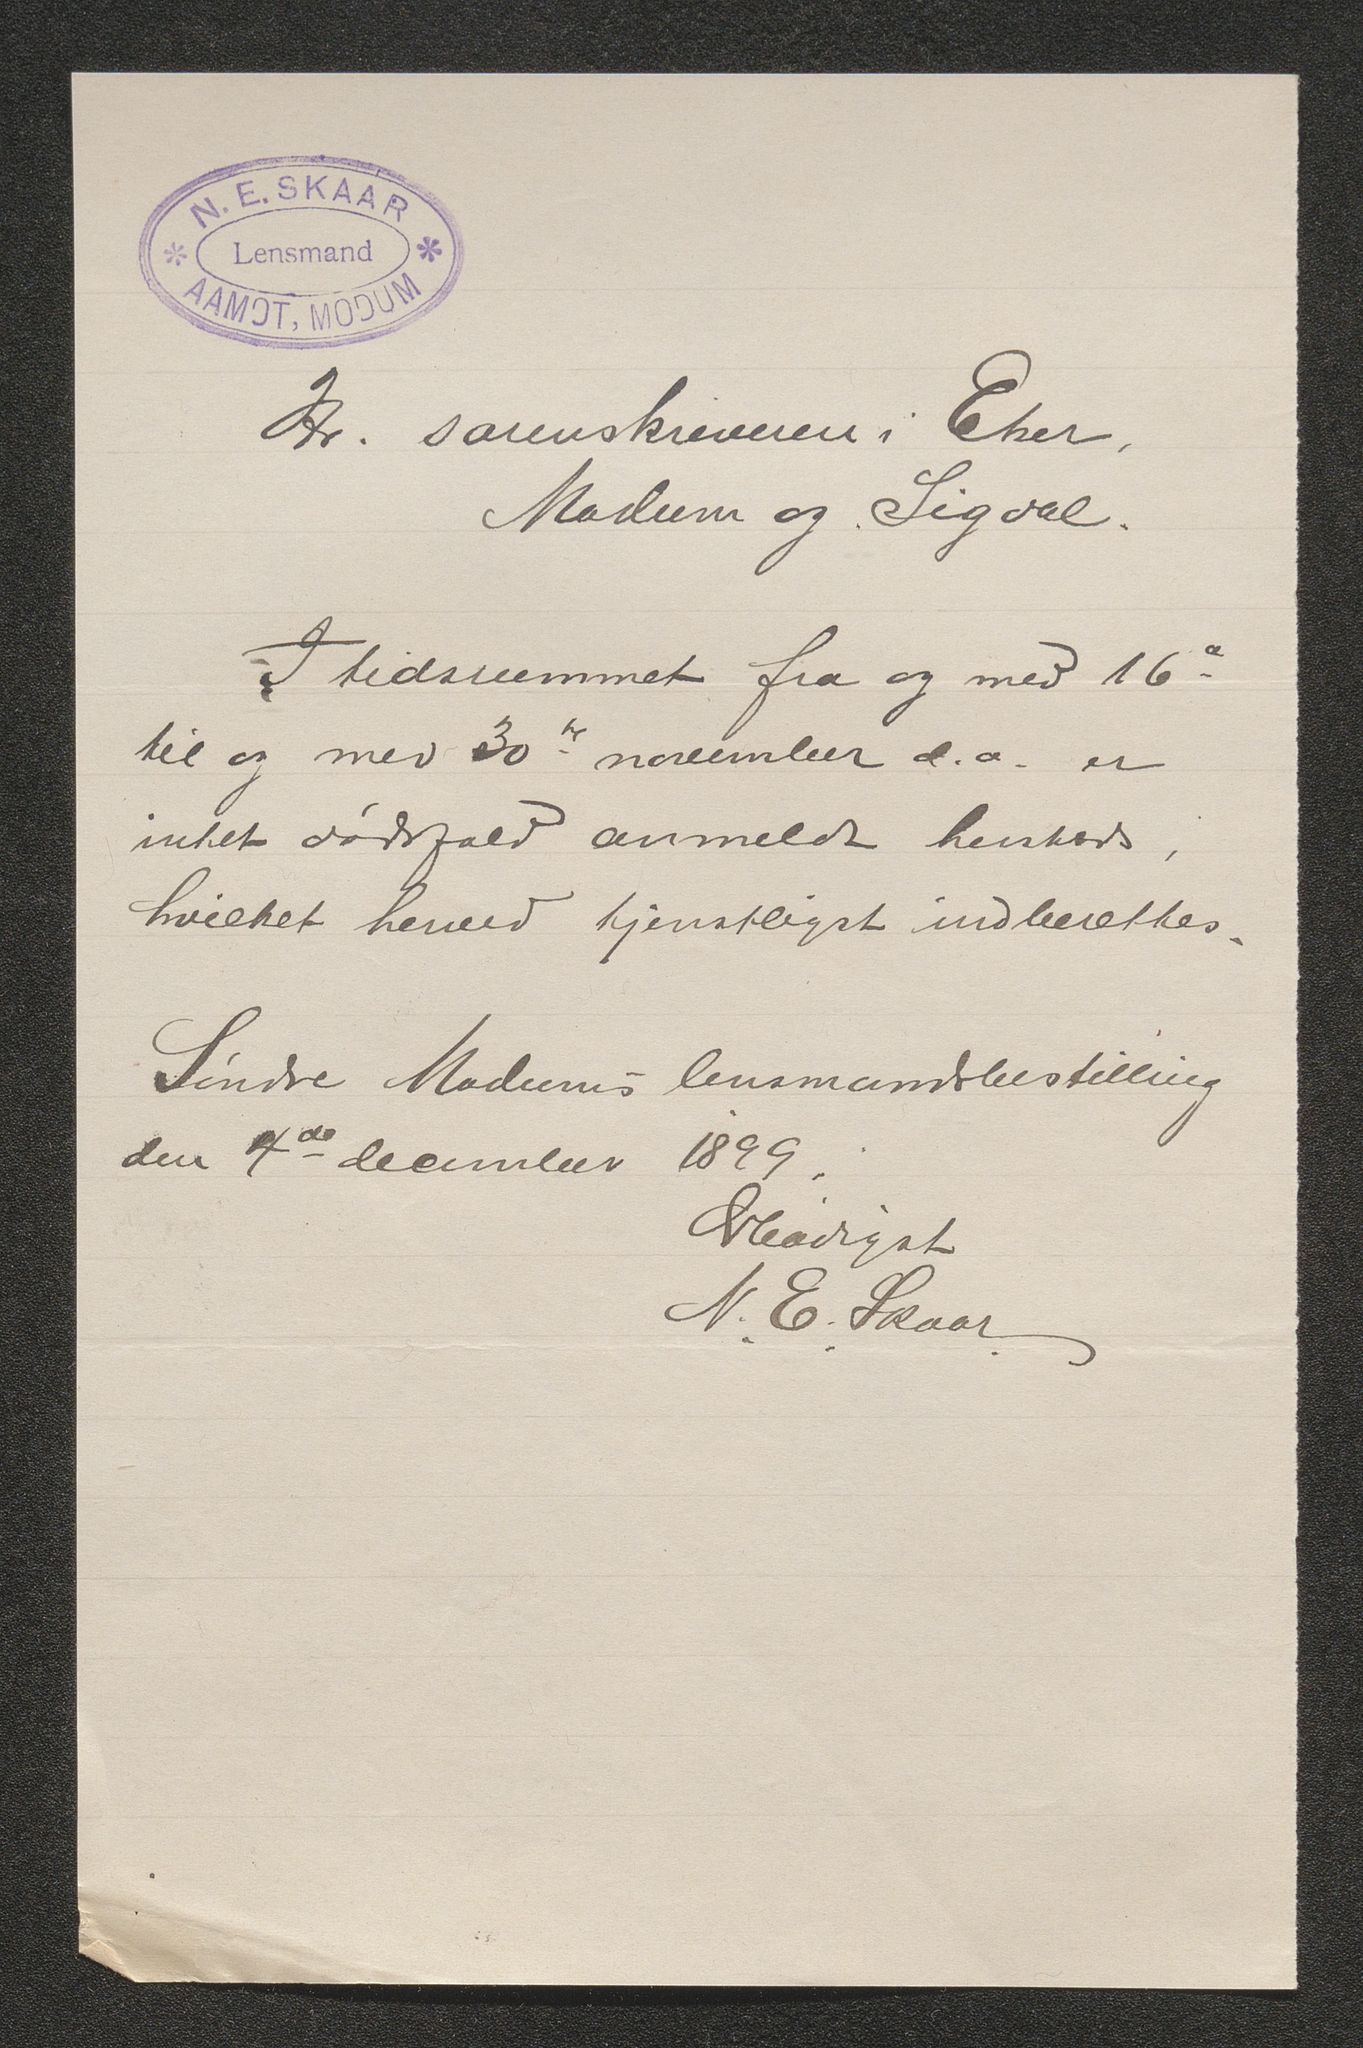 N. E. SKAAR
Lensmand
AAMOT, MODUM
Hr. sorenskriveren i Eker,
Modum og Sigdal.
I tidsrummet fra og med 16de
til og med 30te november d. a. er
intet dødsfald anmeldt hersteds,
hvilket herved tjenstligst indberettes.
Søndre Modums lensmandsbestilling
den 4de december 1899.
Ærbødigst
N. E. Skaar